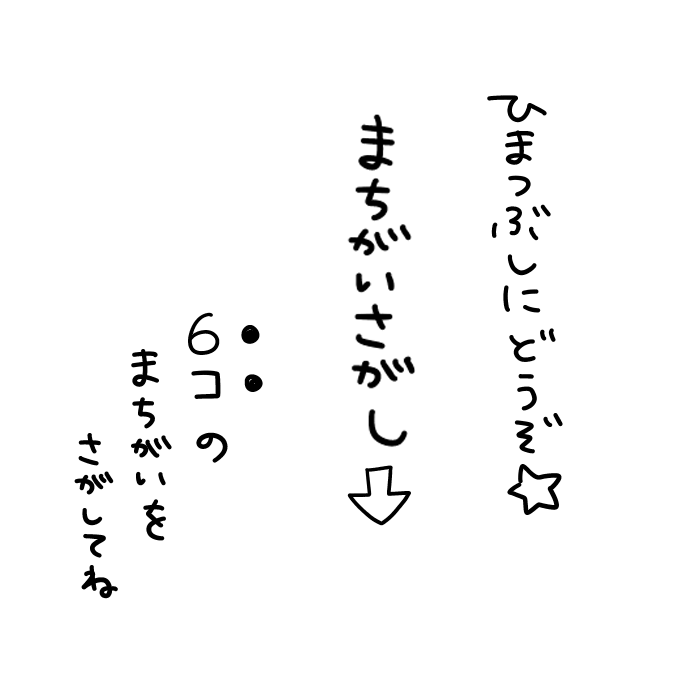 ひまつぶしにどうぞ☆
まちがいさがし⇩
6コの
まちがいを
さがしてね